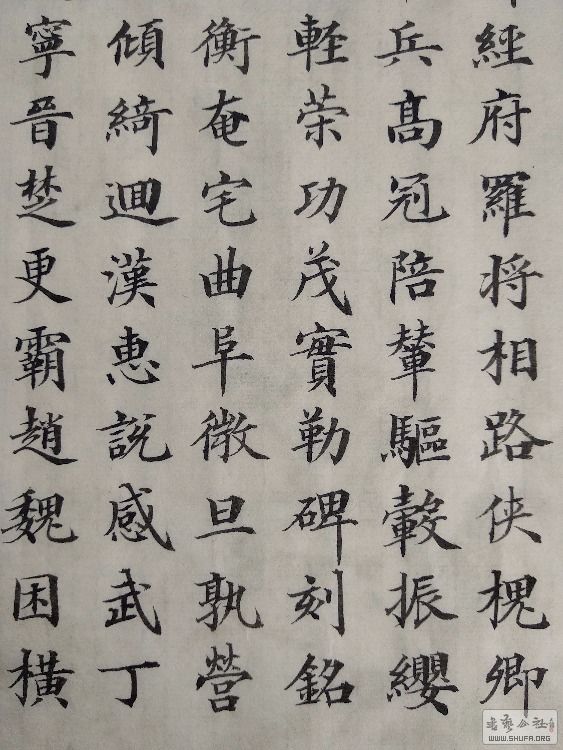 經府羅将相路侠槐卿
兵髙冠陪輦驅轂振纓
軽荣功茂實勒碑刻銘
衡奄宅曲阜微旦孰營
傾綺迴漢惠説感武丁
寧晋楚更霸趙魏困横
書藝公社
WWW.SHUFA.ORG